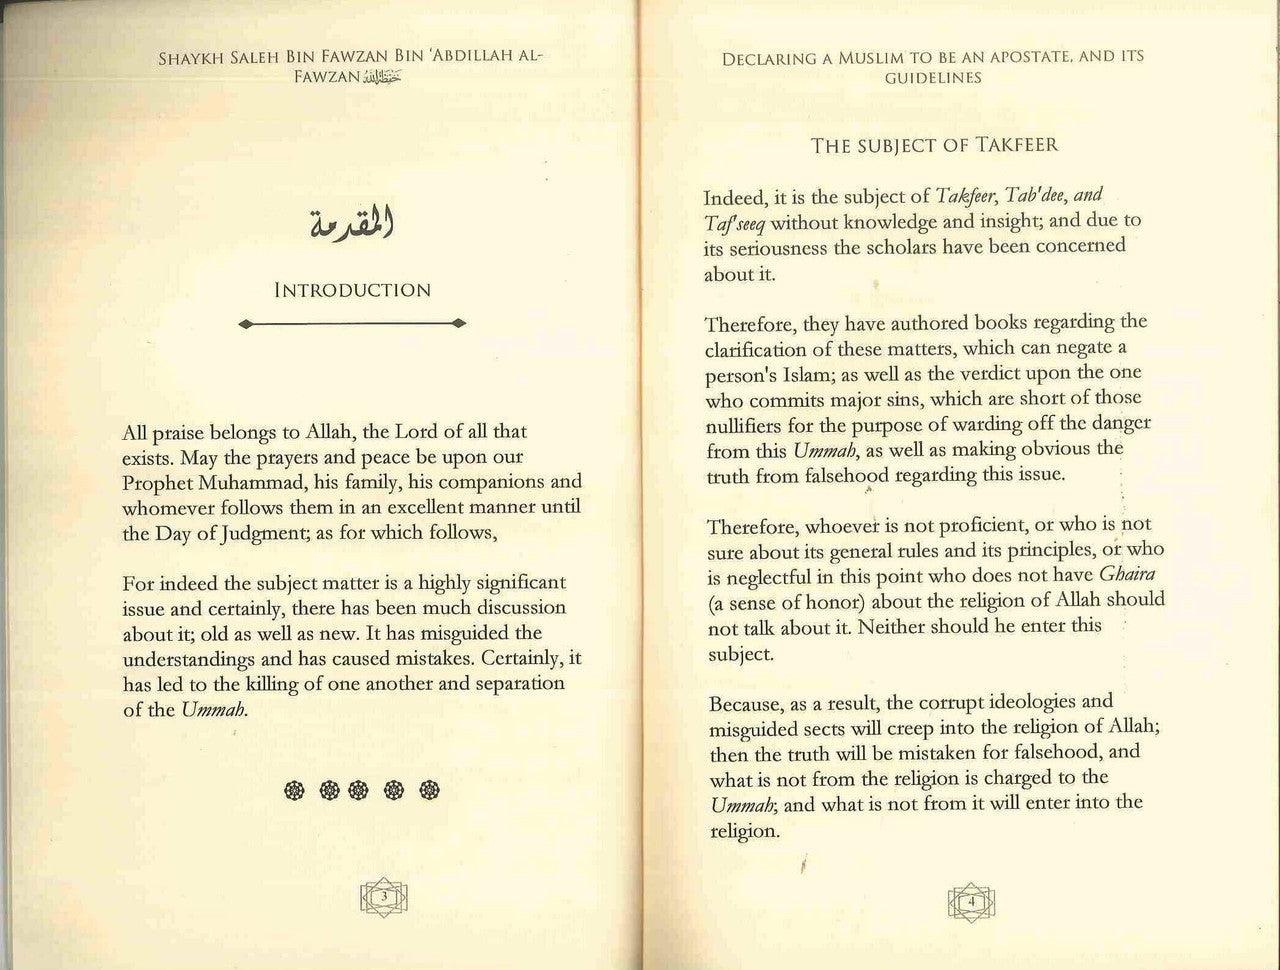 SHAYKH SALEH BIN FAWZAN BIN ‘ABDILLAH AL-
FAWZAN حفظه الله
المقدمة
INTRODUCTION
All praise belongs to Allah, the Lord of all that
exists. May the prayers and peace be upon our
Prophet Muhammad, his family, his companions and
whomever follows them in an excellent manner until
the Day of Judgment; as for which follows,
For indeed the subject matter is a highly significant
issue and certainly, there has been much discussion
about it; old as well as new. It has misguided the
understandings and has caused mistakes. Certainly, it
has led to the killing of one another and separation
of the Ummah.
3
DECLARING A MUSLIM TO BE AN APOSTATE, AND ITS
GUIDELINES
THE SUBJECT OF TAKFEER
Indeed, it is the subject of Takfeer, Tab'dee, and
Taf'seeq without knowledge and insight; and due to
its seriousness the scholars have been concerned
about it.
Therefore, they have authored books regarding the
clarification of these matters, which can negate a
person's Islam; as well as the verdict upon the one
who commits major sins, which are short of those
nullifiers for the purpose of warding off the danger
from this Ummah, as well as making obvious the
truth from falsehood regarding this issue.
Therefore, whoever is not proficient, or who is not
sure about its general rules and its principles, or who
is neglectful in this point who does not have Ghaira
(a sense of honor) about the religion of Allah should
not talk about it. Neither should he enter this
subject.
Because, as a result, the corrupt ideologies and
misguided sects will creep into the religion of Allah;
then the truth will be mistaken for falsehood, and
what is not from the religion is charged to the
Ummah; and what is not from it will enter into the
religion.
4